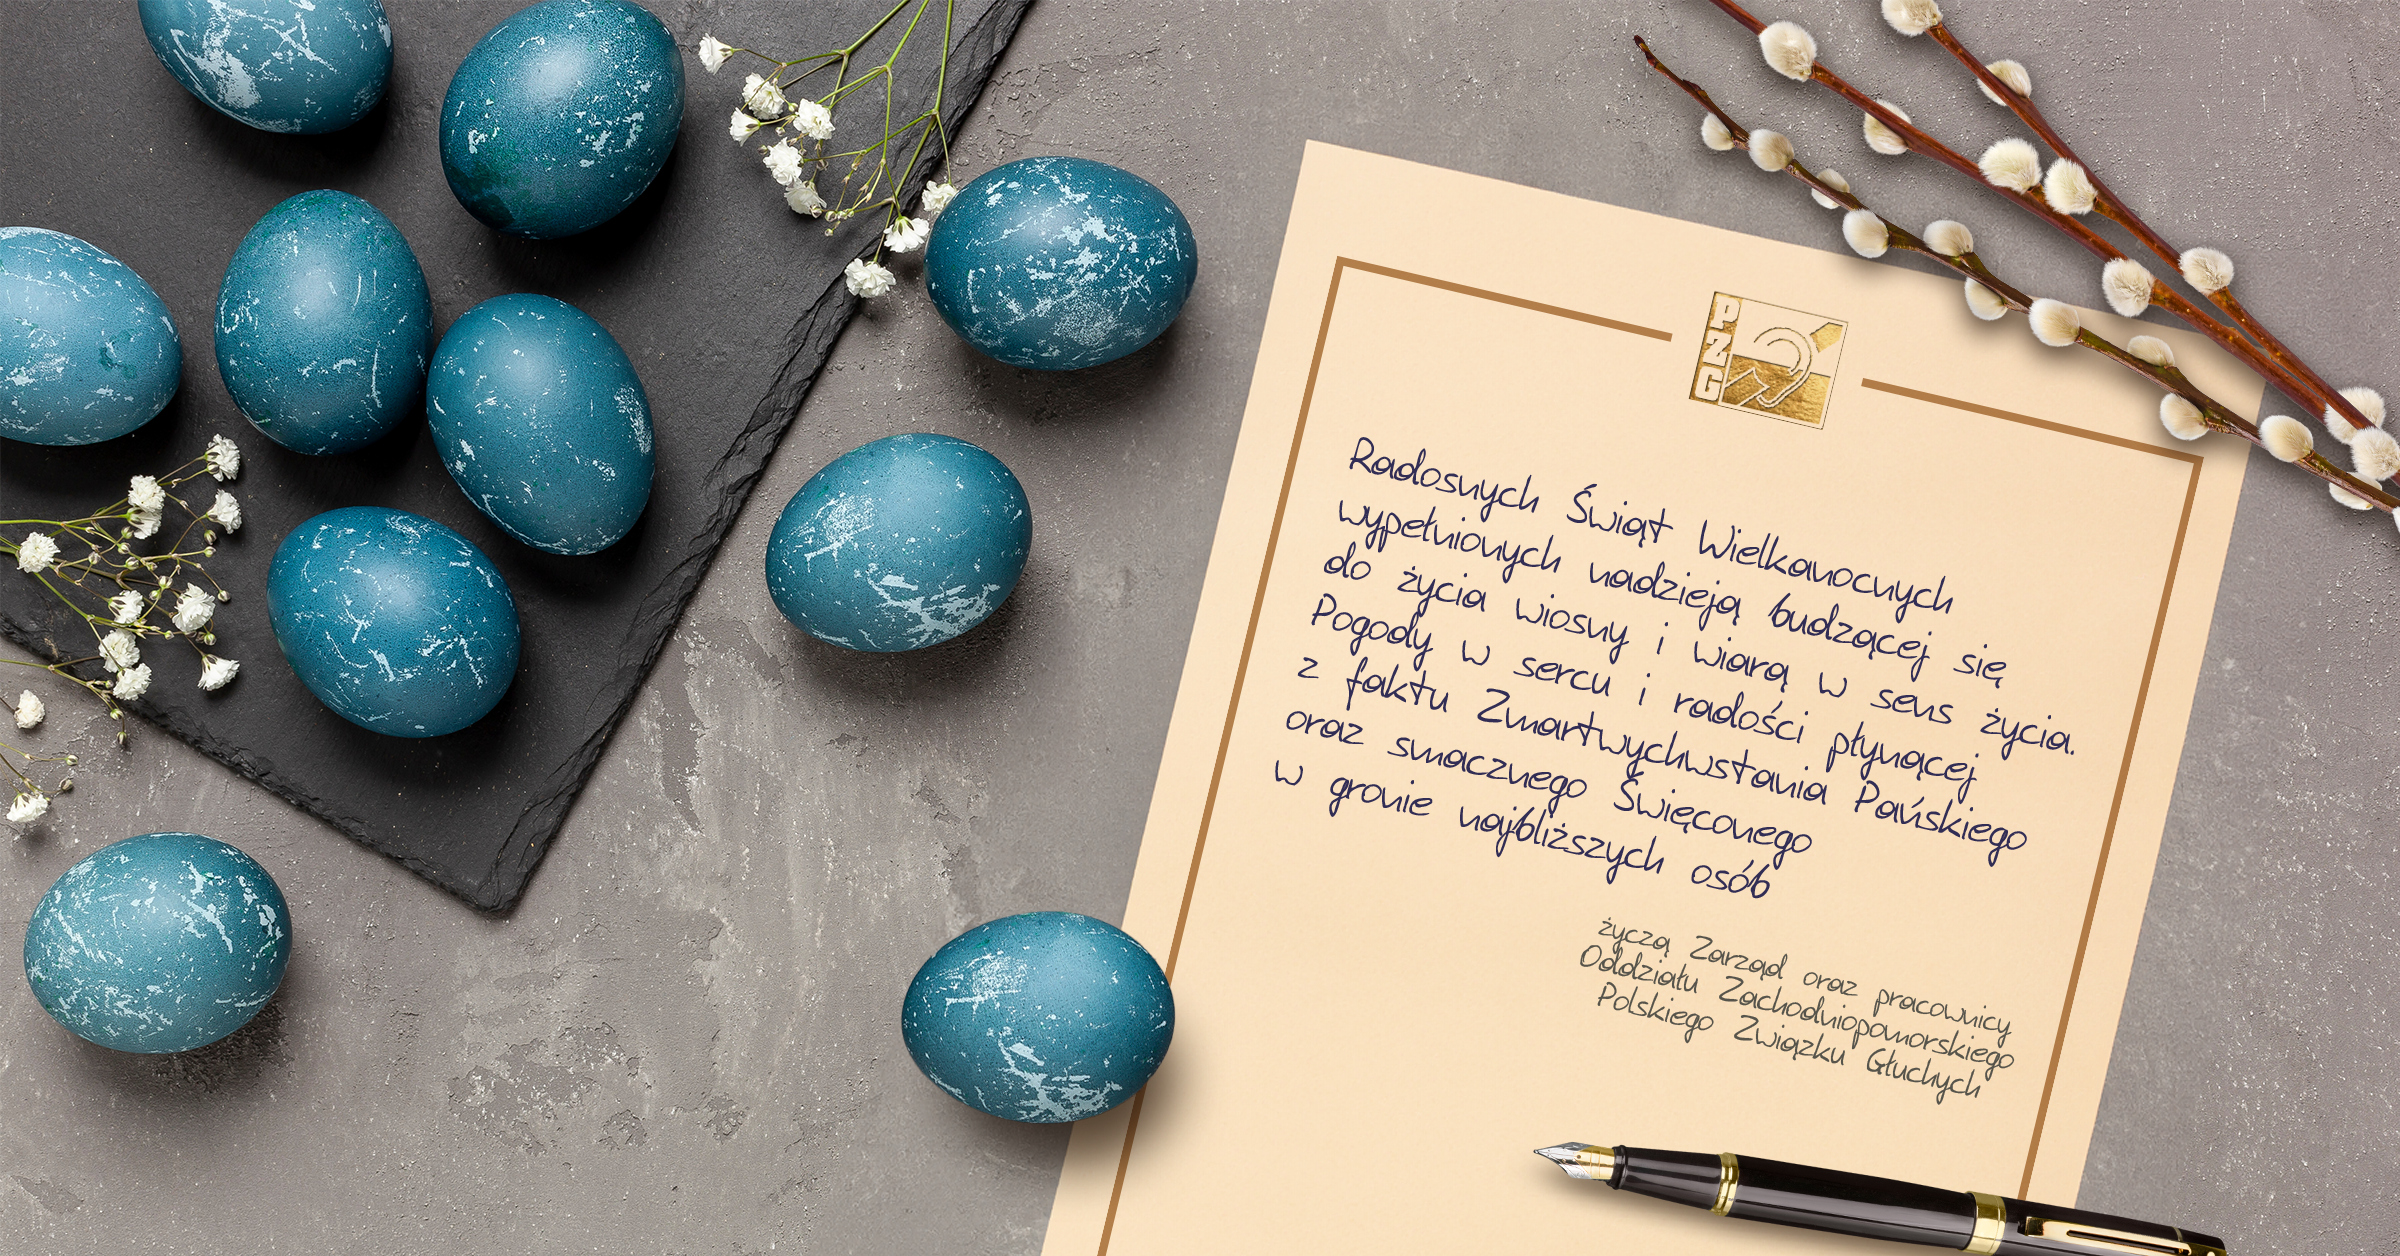 PZG
Radosnych Świąt Wielkanocnych
wypełnionych nadzieją budzącej się
do życia wiosny i wiarą w sens życia.
Pogody w sercu i radości płynącej
z faktu Zmartwychwstania Pańskiego
oraz smacznego Święconego
w gronie najbliższych osób
życzą Zarząd oraz pracownicy
Oddziału Zachodniopomorskiego
Polskiego Związku Głuchych